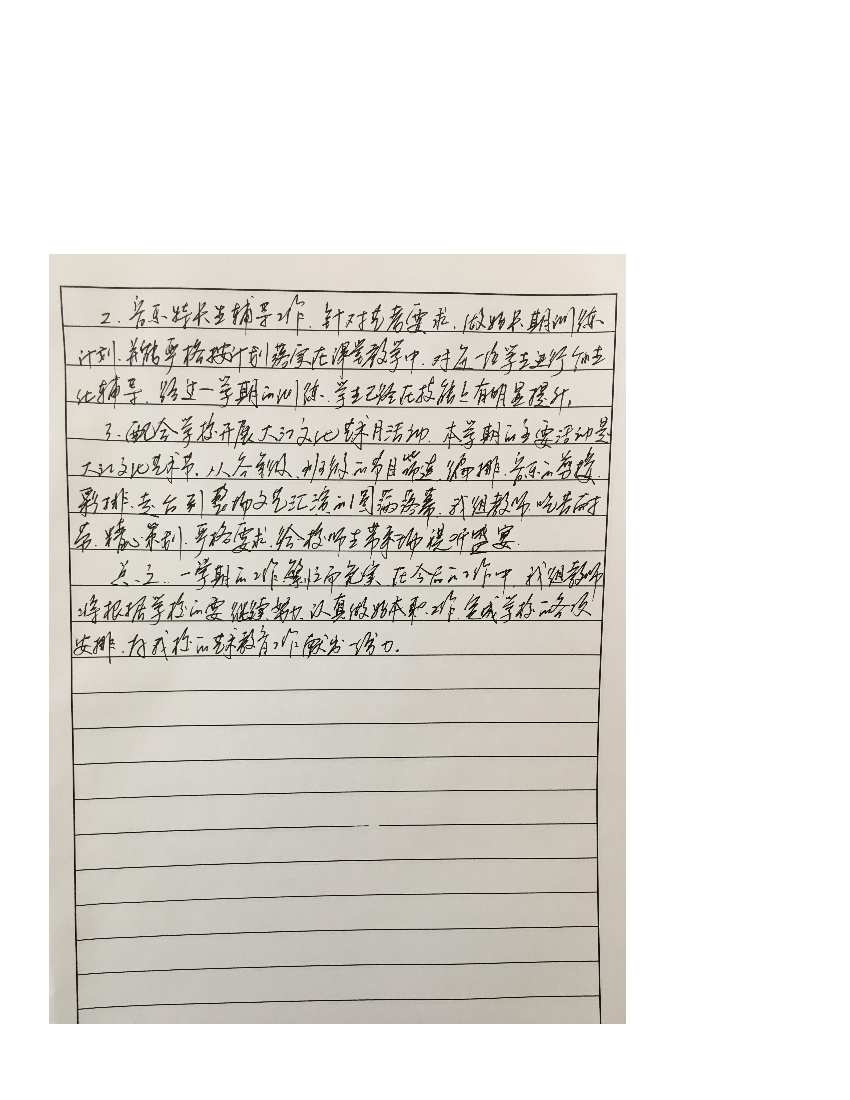 2、音乐特长生辅导工作,针对艺考要求,做好长期训练
计划,并能严格按计划落实在课堂教学中,对每一位学生进行个性
化辅导,经过一学期的训练,学生已经在技能上有明显提升。
3、配合学校开展大江文化艺术月活动,本学期的主要活动是
大江文化艺术节,从各年级、班级的节目筛选、编排、音乐的剪接、
彩排、走台到整场文艺汇演的圆满落幕,我组教师吃苦耐
劳,精心策划,严格要求,给校师生带来场视听盛宴。
总之,一学期的工作繁忙而充实,在今后的工作中,我组教师
将根据学校的要继续努力,认真做好本职工作,完成学校的各项
安排,为我校的艺术教育工作献出一份力。